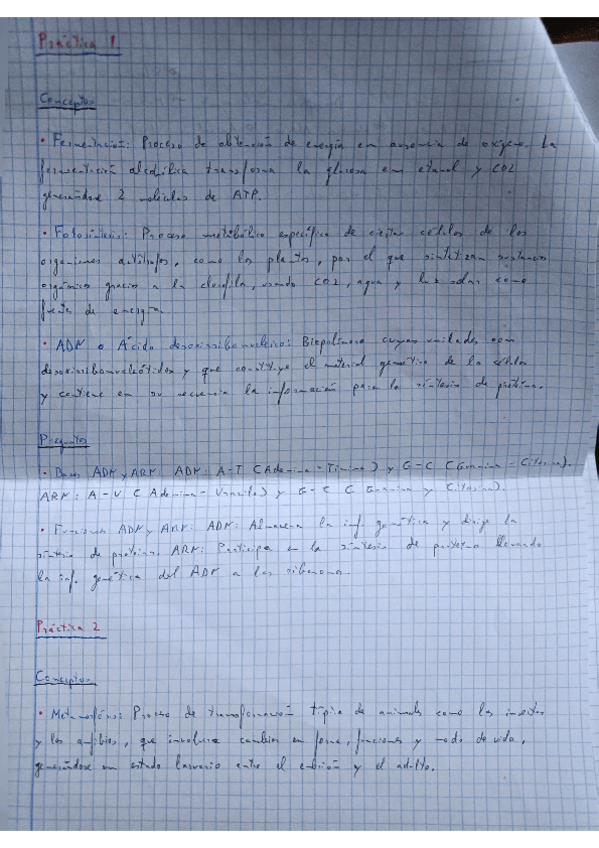 Práctica 1
Conceptos
• Fermentación: Proceso de obtención de energía en ausencia de oxígeno. La
fermentación alcohólica transforma la glucosa en etanol y CO2
generándose 2 moléculas de ATP.
• Fotosíntesis: Proceso metabólico específico de ciertas células de los
organismos autótrofos, como las plantas, por el que sintetizan sustancias
orgánicas gracias a la clorofila, usando CO2, agua y luz solar como
fuente de energía.
• ADN o Ácido desoxirribonucleico: Biopolímero cuyas unidades son
desoxirribonucleótidos y que constituye el material genético de la célula
y contiene en su secuencia la información para la síntesis de proteína.
Preguntas
• Bases ADN y ARN: ADN: A-T (Adenina-Timina) y G-C (Guanina-Citosina).
ARN: A-U (Adenina-Uracilo) y G-C (Guanina y Citosina).
• Funciones ADN y ARN: ADN: Almacena la inf. genética y dirige la
síntesis de proteínas. ARN: Participa en la síntesis de proteína llevando
la inf. genética del ADN a los ribosomas.
Práctica 2
Conceptos
• Metamorfosis: Proceso de transformación típica de animales como los insectos
y los anfibios, que involucra cambios en forma, funciones y modo de vida,
generándose un estado larvario entre el embrión y el adulto.